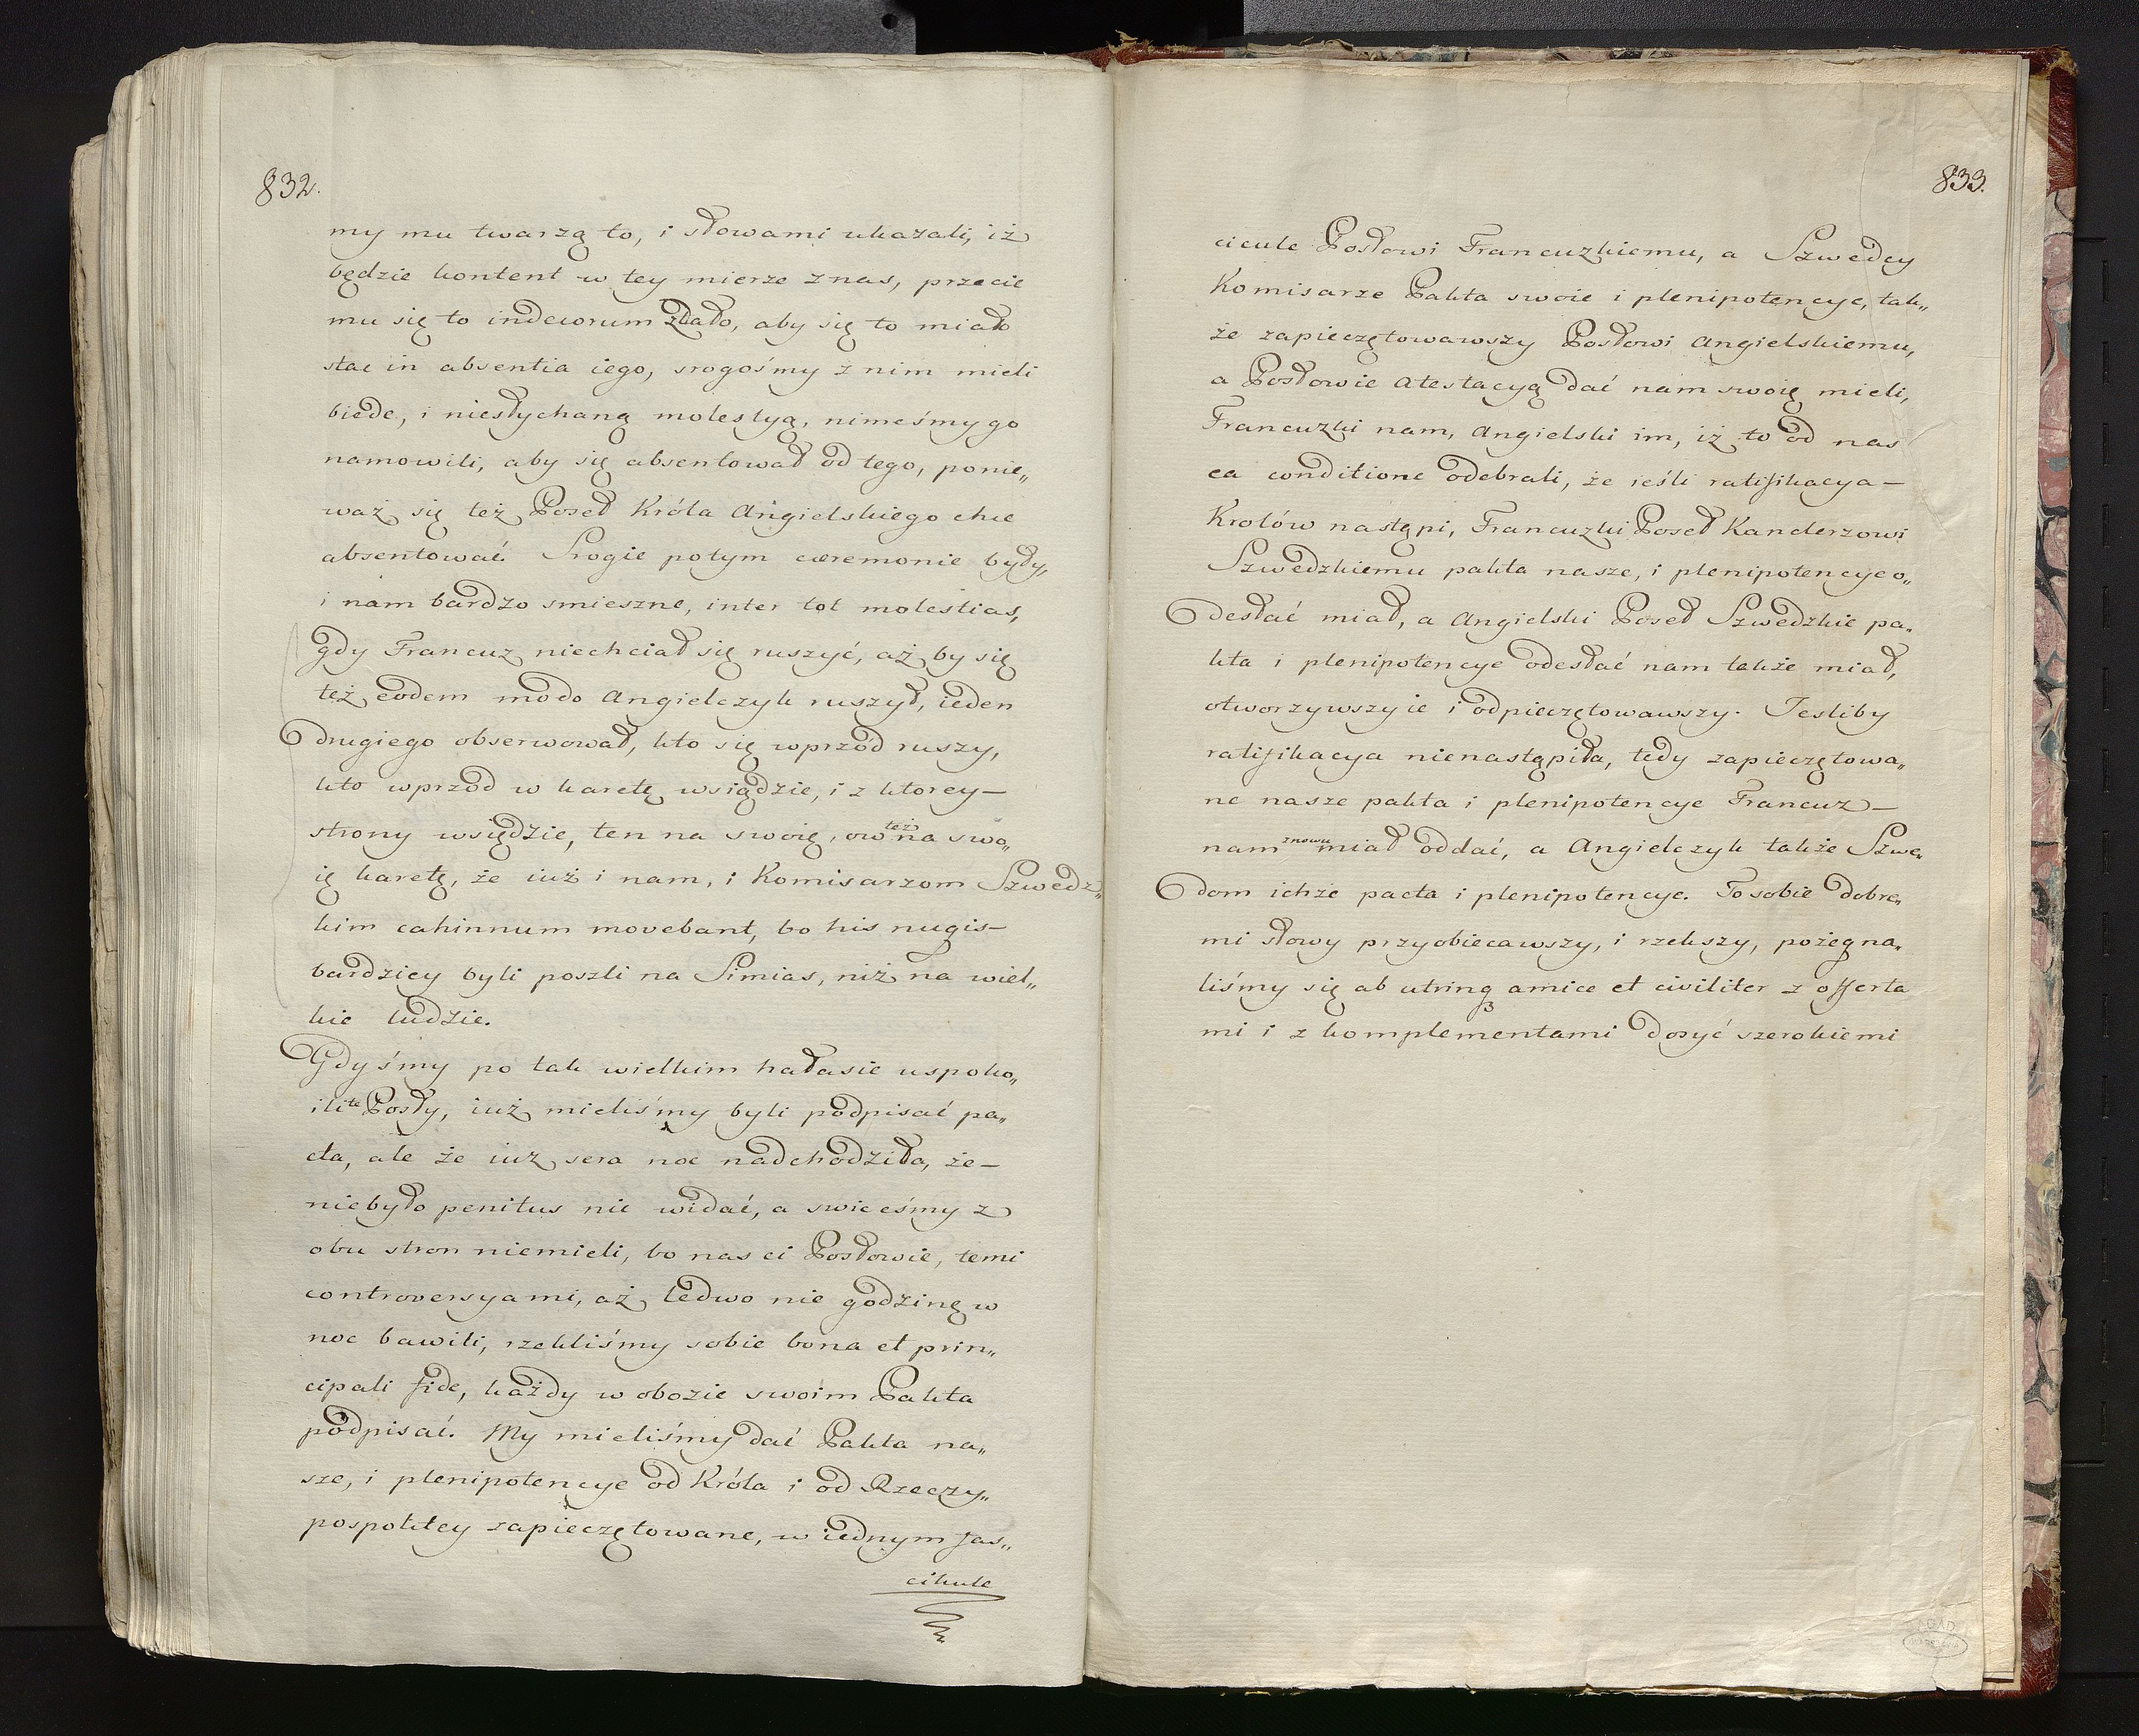 832.
my mu twarzą to, i słowami ukazali, iż
będzie kontent w tey mierze z nas, przecie
mu się to indecorum zdało, aby się to miało
stac in absentia iego, srogośmy z nim mieli
biede, i niesłychaną molestyą, nimeśmy go
namowili, aby się absentował od tego, ponie„
waż się też Poseł Króla Angielskiego chce
absentować. Srogie potym cæremonie były,
i nam bardzo smieszne, inter tot molestias,
gdy Francuz niechciał się ruszyć, aż by się
też eodem modo Angielczyk ruszył, ieden
drugiego obserwował, kto się wprzód ruszy,
kto wprzod w karetę wsiądzie, i z ktorey—
strony wsiędzie, ten na swoię, ow też na swo„
ię karetę, że iuż i nam, i Komisarzom Szwedz„
kim cahinnum movebant, bo his nugis—
bardziey byli poszli na Simias, niż na wiel„
kie ludzie.
Gdyśmy po tak wielkim hałasie uspoko„
ili te Posły, iuż mieliśmy byli podpisać pa„
cta, ale że iuż sera noc nadchodziła, że—
niebyło penitus nic widać, a swieceśmy z
obu stron niemieli, bo nas ci Posłowie, temi
controversyami, aż ledwo nie godzinę w
noc bawili, rzekliśmy sobie bona et prin„
cipali fide, każdy w obozie swoim Pakta
podpisać. My mieliśmy dać Pakta na„
sze, i plenipotencye od Króla i od Rzeczy„
pospolitey zapieczętowane, w iednym fas„
cikule
833.
cicule Posłowi Francuzkiemu, a Szwedcy
Komisarze Pakta swoie i plenipotencye, tak„
że zapieczętowawszy Posłowi Angielskiemu,
a Posłowie Atestacyą dać nam swoię mieli,
Francuzki nam, Angielski im, iż to od nas
ea conditione odebrali, że ieśli ratifikacya—
Krolów nastąpi, Francuzki Poseł Kanclerzowi
Szwedzkiemu pakta nasze, i plenipotencye o„
desłać miał, a Angielski Poseł Szwedzkie pa„
kta i plenipotencye odesłać nam także miał,
otworzywszy ie i odpieczętowawszy. Jesliby
ratifikacya nienastąpiła, tedy zapieczętowa„
ne nasze pakta i plenipotencye Francuz—
nam znowu miał oddać, a Angielczyk także Szwe„
dom ichże pacta i plenipotencye. To sobie dobre„
mi słowy przyobiecawszy, i rzekszy, pożegna„
liśmy się ab utrinq amice et civiliter z offerta
mi i z komplementami dosyć szerokiemi